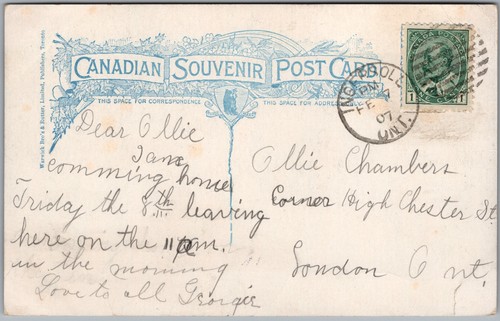 CANADIAN SOUVENIR POST CARD
THIS SPACE FOR CORRESPONDENCE
THIS SPACE FOR ADDRESS
Warwick Bro's & Rutter, Limited, Publishers, Toronto
CANADA POSTAGE
1 1
INGERSOLL
PM
FE 7
07
ONT.
Dear Ollie
I am
comming home
Friday the 8th leaving
here on the 11 am.
in the morning
Love to all Georgie
Ollie Chambers
Corner High Chester St
London Ont.